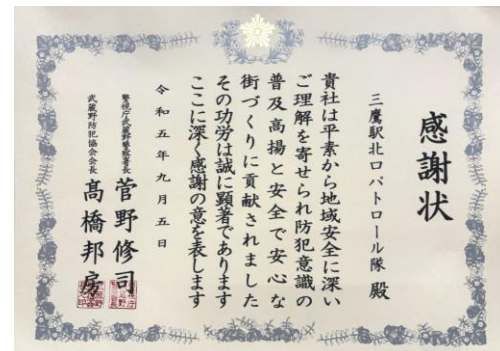 感謝状
三鷹駅北口パトロール隊 殿
貴社は平素から地域安全に深い
ご理解を寄せられ防犯意識の
普及高揚と安全で安心な
街づくりに貢献されました
その功労は誠に顕著であります
ここに深く感謝の意を表します
令和五年九月五日
警視庁武蔵野警察署長 菅野修司
武蔵野防犯協会会長 髙橋邦房